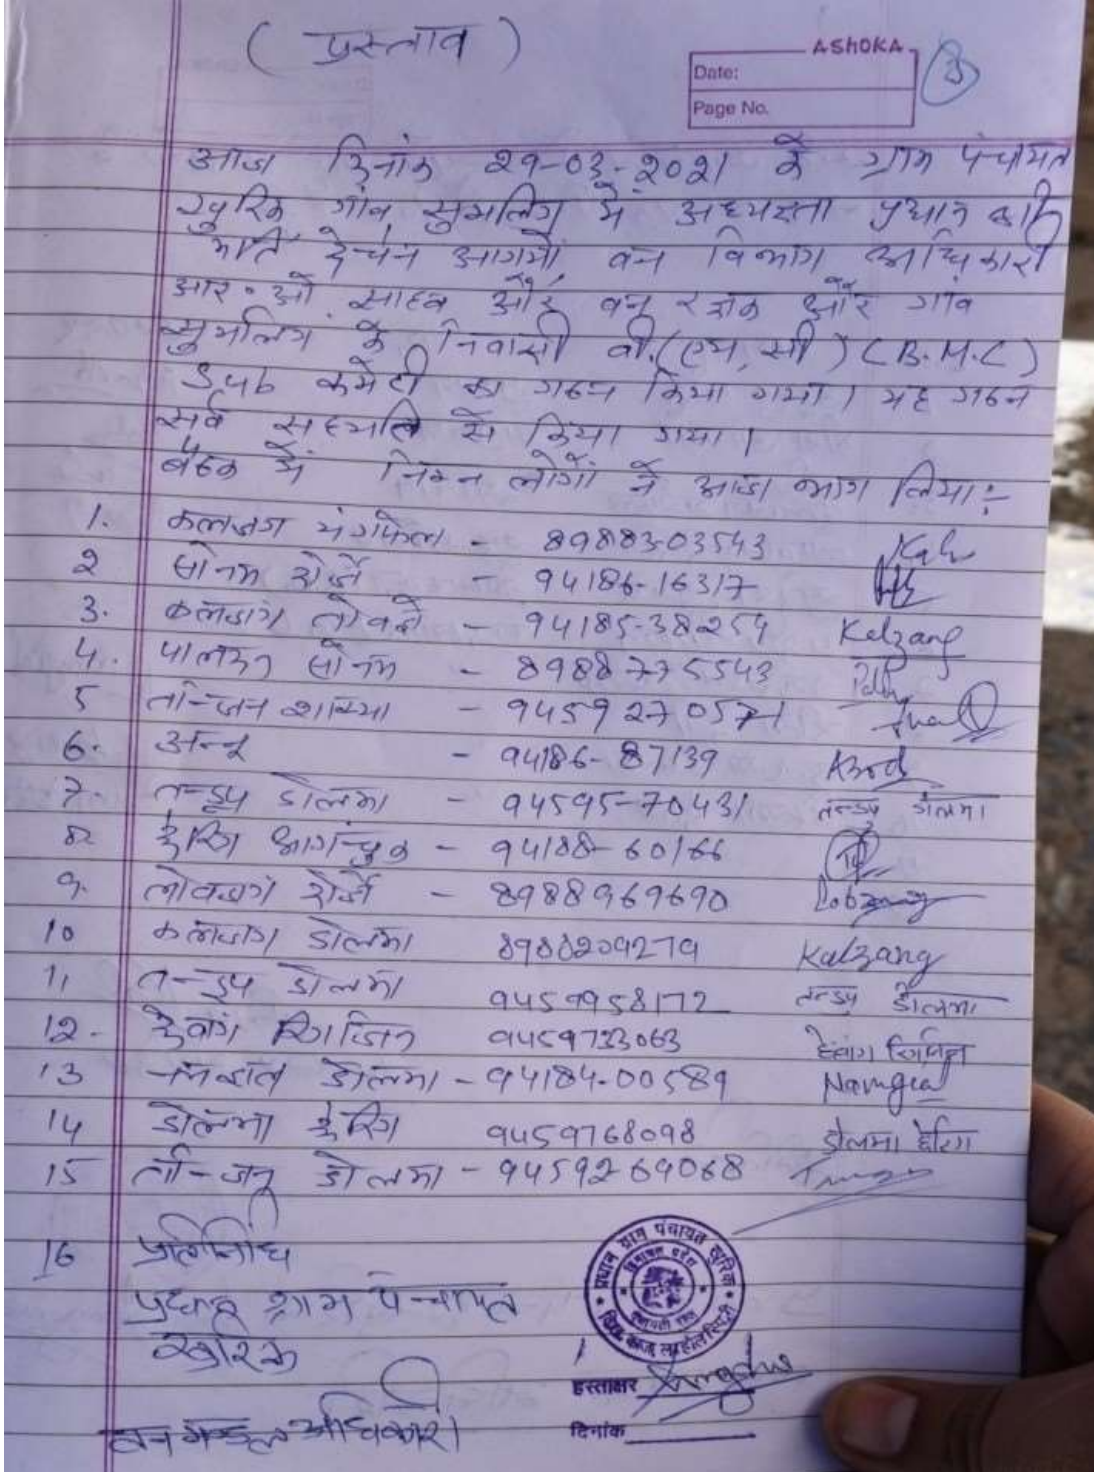 ( प्रस्ताव )
ASHOKA
Date:
Page No.
3
आज दिनांक 29-03-2021 के ग्राम पंचायत
खुरिक गांव सुमलिंग में अध्यक्षता प्रधान
वन विभाग अधिकारी
आर॰ ओ. साहब और वन रक्षक और गांव
सुमलिंग के निवासी बी.(एम, सी) (B.M.C)
Sub कमेटी का गठन किया गया। यह गठन
सर्व सहमति से किया गया।
बैठक में निम्न लोगों ने आज भाग लिया:-
1. कलजंग - 8988303543
2 सोनम दोर्जे - 94186-16317
3. कलजंग - 94185-38254 Kalzang
4. पालदन सोनम - 8988775543
5 तन्जिन शाक्या - 9459270571
6. अन्नू - 94186-87139
7. तन्डुप डोलमा - 94595-70431 तन्डुप डोलमा
8. छेरिंग - 94188-60166
9. लोबजंग दोर्जे - 8988969690 Lobzang
10 कलजांग डोलमा 8988209279 Kalzang
11 तन्डुप डोलमा 9459958172 तन्डुप डोलमा
12. छेवांग रिगजिन 9459733063 छेवांग रिगजिन
13 डोलमा - 94184-00589 Namgial
14 डोलमा छेरिंग 9459768098 डोलमा छेरिंग
15 तन्जिन डोलमा - 9459269068
16 प्रतिनिधि
प्रधान ग्राम पंचायत
खुरिक
प्रधान ग्राम पंचायत खुरिक
हिमाचल प्रदेश
हस्ताक्षर
दिनांक
वन मण्डल अधिकारी